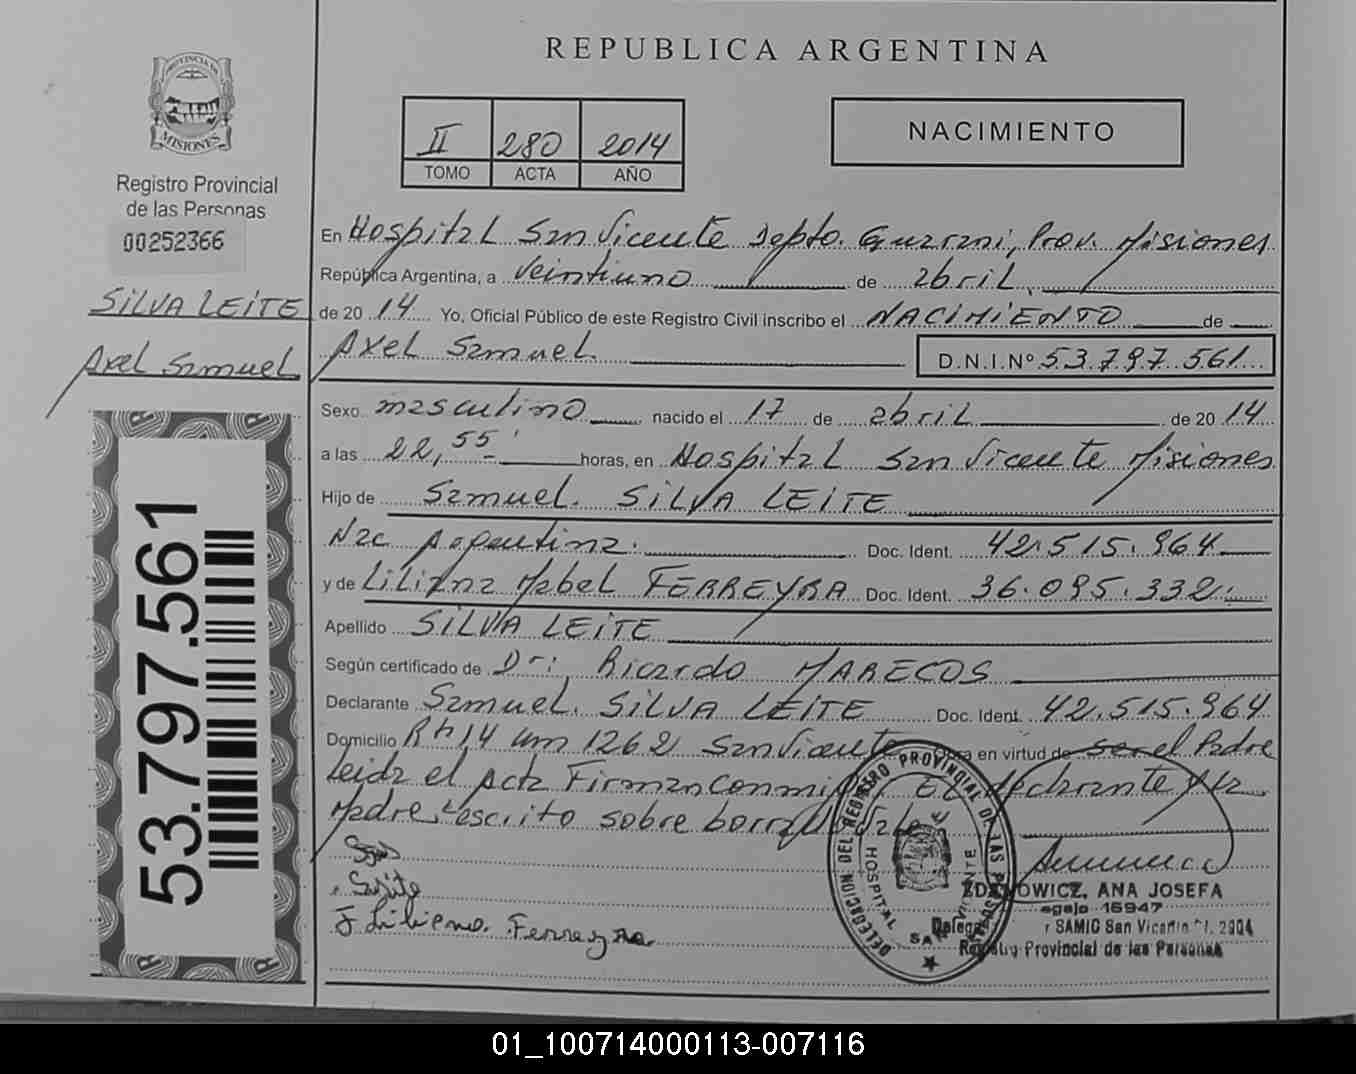 REPUBLICA ARGENTINA
PROVINCIA DE
MISIONES
Registro Provincial
de las Personas
00252366
SILVA LEITE
Axel Samuel
53.797.561
II 280 2014
TOMO ACTA AÑO
NACIMIENTO
En Hospital San Vicente Depto. Guarani, Prov. Misiones
República Argentina, a veintiuno de abril
de 20 14 Yo, Oficial Público de este Registro Civil inscribo el NACIMIENTO de
Axel Samuel D.N.I.Nº 53.797.561
Sexo masculino nacido el 17 de abril de 20 14
a las 22,55 horas, en Hospital San Vicente Misiones
Hijo de Samuel SILVA LEITE
Nac Argentina. Doc. Ident. 42.515.964
y de Liliana Mabel FERREYRA Doc. Ident. 36.095.332
Apellido SILVA LEITE
Según certificado de Dr: Ricardo MARECOS
Declarante Samuel SILVA LEITE Doc. Ident. 42.515.964
Domicilio Rn 14 km 1262 San Vicente Obra en virtud de ser el Padre
leida el Acta Firman conmigo El declarante y la
Madre escrito sobre borrado Vale
Liliana Ferreyra
DELEGACION DEL REGISTRO PROVINCIAL DE LAS PERSONAS
HOSPITAL SAN VICENTE
ZDANOWICZ, ANA JOSEFA
Legajo 16947
SAMIC San Vicente 2904
Registro Provincial de las Personas
01_100714000113-007116